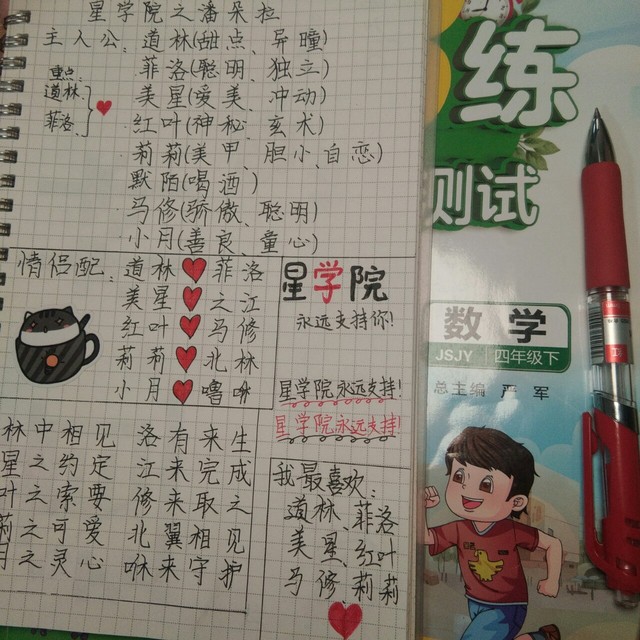 星学院之潘朵拉
主人公：道林(甜点、异瞳)
菲洛(聪明、独立)
重点
道林
菲洛
美星(爱美、冲动)
红叶(神秘、玄术)
莉莉(美甲、胆小、自恋)
默陌(喝酒)
马修(骄傲、聪明)
小月(善良、童心)
情侣配：道林 菲洛
美星 之江
红叶 马修
莉莉 北林
小月 噜咻
星学院
永远支持你!
星学院永远支持!
星学院永远支持!
林中相见 洛有来生
星之约定 江来完成
叶之索要 修来取之
莉之可爱 北翼相见
月之灵心 咻来守护
我最喜欢：
道林、菲洛
美星、红叶
马修、莉莉
练
测试
数学
JSJY 四年级下
总主编 严军